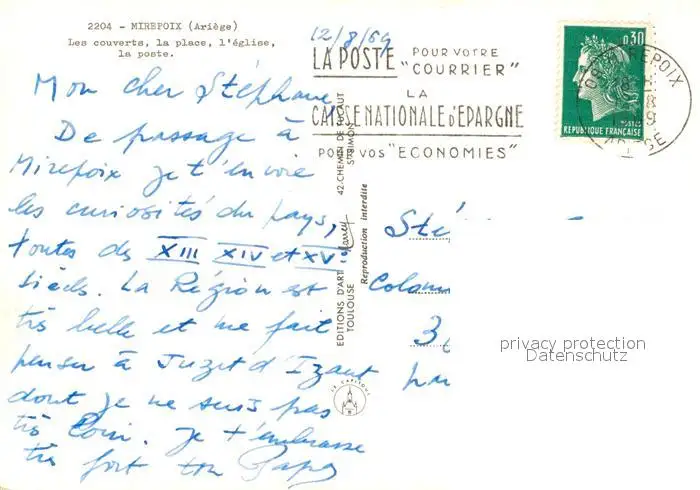 2204 - MIREPOIX (Ariège)
Les couverts, la place, l'église,
la poste.
12/8/69
LA POSTE POUR VOTRE "COURRIER"
LA
CAISSE NATIONALE d'EPARGNE
POUR VOS "ECONOMIES"
0,30
POSTES
REPUBLIQUE FRANÇAISE
MIREPOIX
Mon cher Stéphane,
De passage à
Mirepoix je t'envoie
les curiosités du pays,
toutes des XIII XIV et XV
siècls. La Région est
très belle et me fait
penser à Juzet d'Izaut
dont je ne suis pas
très loin. Je t'embrasse
très fort ton Papa
EDITIONS D'ART Larrey 42, CHEMIN DE
TOULOUSE ST-SIMON
Reproduction interdite
LE CAPITOUL
Sté
Colom
3
privacy protection
Datenschutz